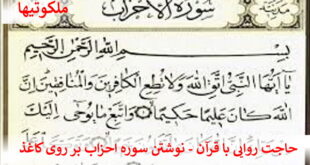 ملکوتیها
سورة الأحزاب
بسم الله الرحمن الرحيم
يا أيها النبي اتق الله ولا تطع الكافرين والمنافقين إن
الله كان عليما حكيما واتبع ما يوحى إليك
حاجت روایی با قرآن - نوشتن سوره احزاب بر روی کاغذ